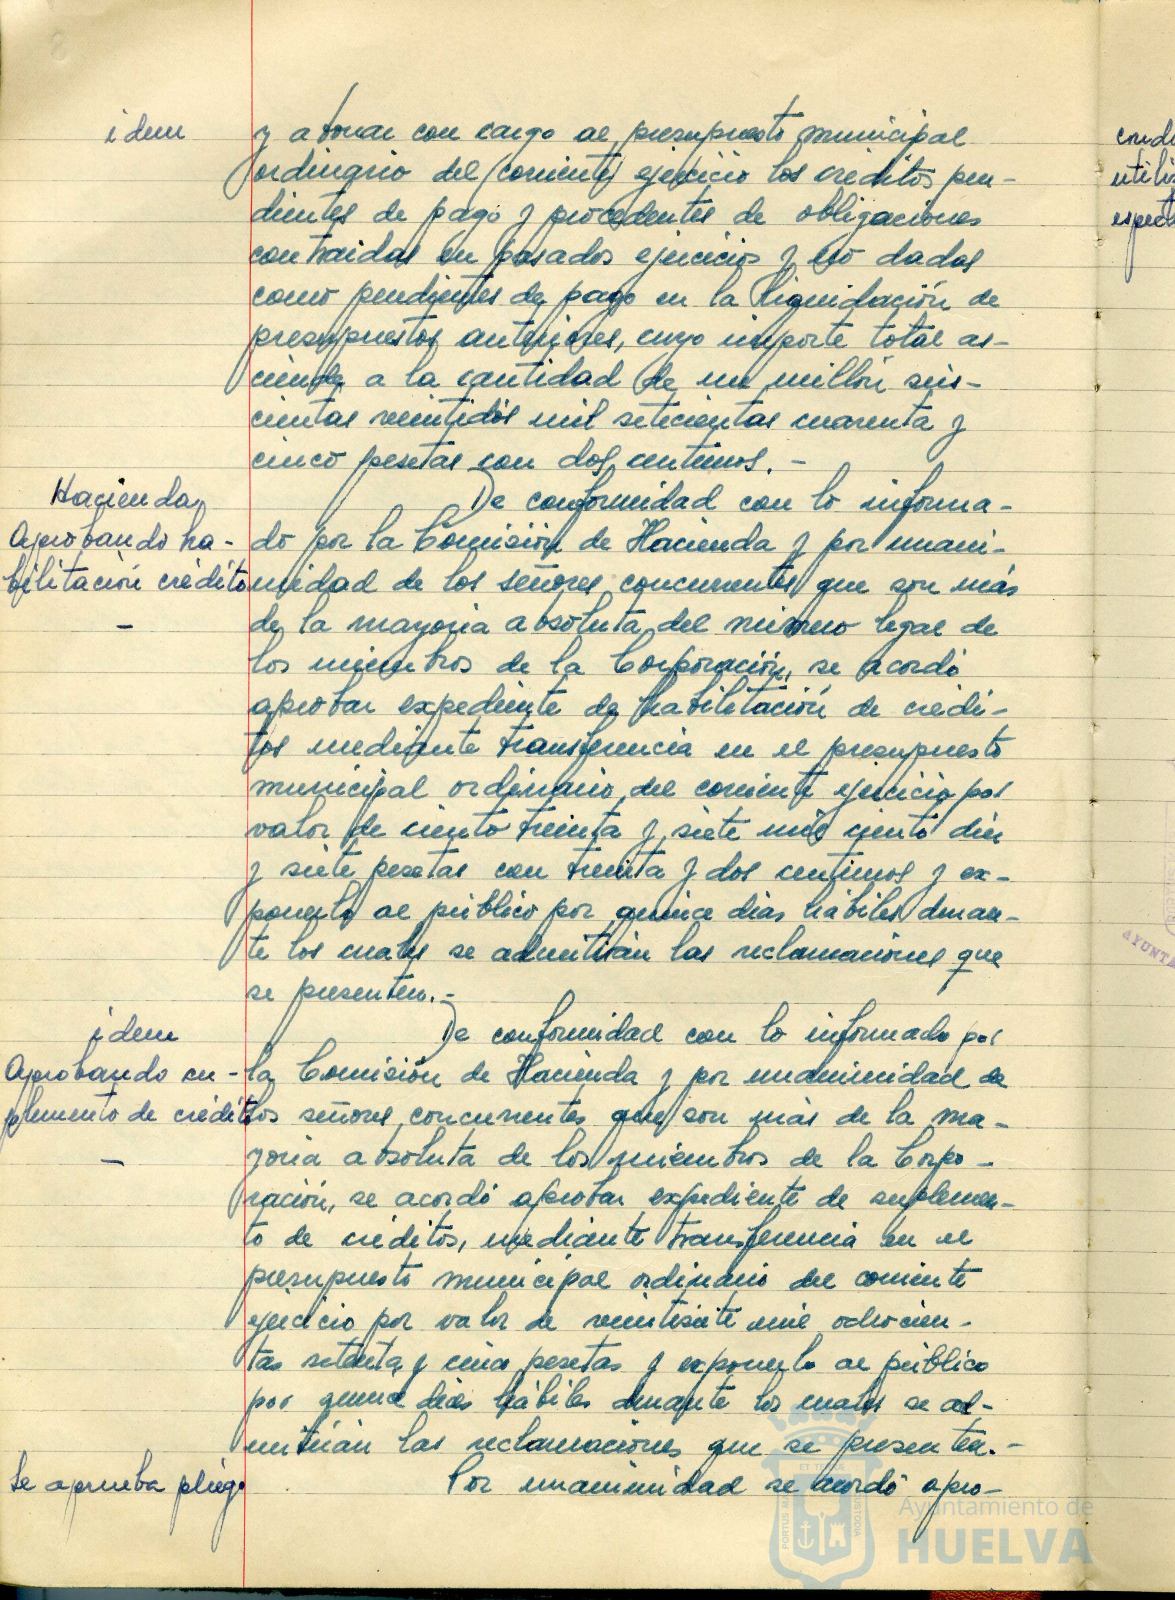 idem
y abonar con cargo al presupuesto municipal
ordinario del (corriente) ejercicio los créditos pen-
dientes de pago y procedentes de obligaciones
contraidas en pasados ejercicios y no dadas
como pendientes de pago en la liquidación de
presupuestos anteriores, cuyo importe total as-
ciende a la cantidad de un millón seis-
cientas veintidós mil setecientas cuarenta y
cinco pesetas con dos centimos. -
Hacienda
Aprobando ha-
bilitación crédito
-
De conformidad con lo informa-
do por la Comisión de Hacienda y por unani-
midad de los señores concurrentes que son más
de la mayoria absoluta del número legal de
los miembros de la Corporación, se acordó
aprobar expediente de habilitación de crédi-
tos mediante transferencia en el presupuesto
municipal ordinario del corriente ejercicio por
valor de ciento treinta y siete mil ciento diez
y siete pesetas con treinta y dos centimos y ex-
ponerlo al público por quince dias hábiles duran-
te los cuales se admitirán las reclamaciones que
se presenten. -
idem
Aprobando su-
plemento de crédito
-
De conformidad con lo informado por
la Comisión de Hacienda y por unanimidad de
los señores concurrentes que son más de la ma-
yoria absoluta de los miembros de la Corpo-
ración, se acordó aprobar expediente de suplemen-
to de créditos, mediante transferencia en el
presupuesto municipal ordinario del corriente
ejercicio por valor de veintisiete mil ochocien-
tas setenta y cinco pesetas y exponerlo al público
por quince dias hábiles durante los cuales se ad-
mitirán las reclamaciones que se presenten. -
Se aprueba pliego
Por unanimidad se acordó apro-
Ayuntamiento de
HUELVA